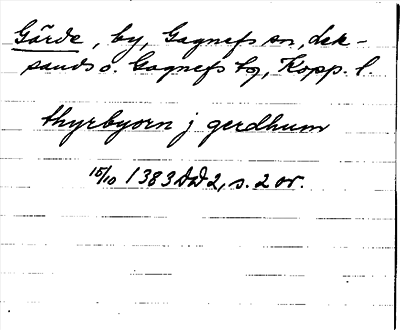 Gärde, by, Gagnefs sn, Lek-
sands o. Gagnefs tg, Kopp. l.
thyrbyorn j gerdhum
15/10 1383 DD2, s. 2 or.